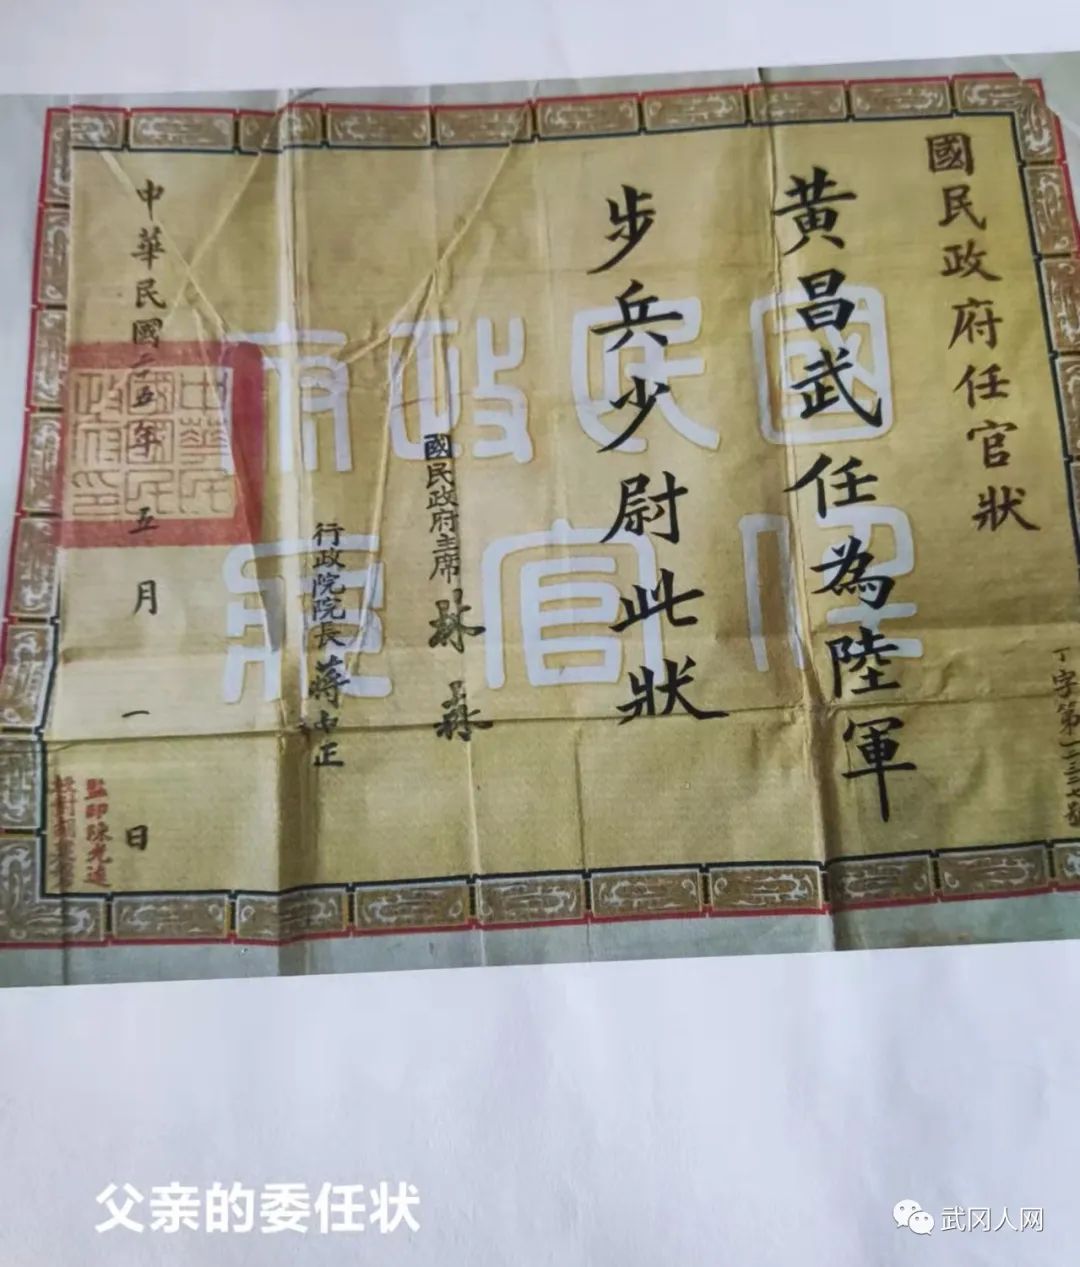 國民政府任官狀
黃昌武任為陸軍
步兵少尉此狀
國民政府主席 林森
行政院院長 蔣中正
中華民國二十五年五月一日
國民政府
任官狀
監印陳光遠
父亲的委任状
武冈人网